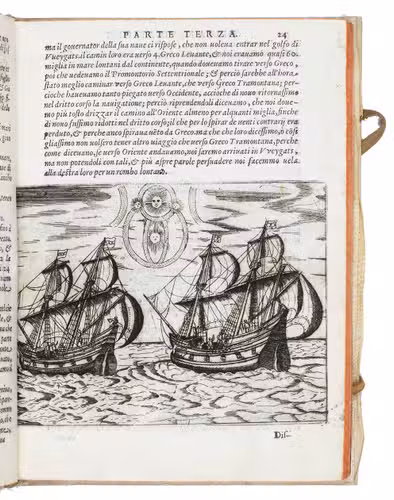 PARTE TERZA. 24
ma il governator della sua naue ci rispose, che non uoleua entrar nel golfo di
Vueygats. il camin loro era verso 4. Greco Leuante, & noi erauamo quasi 60.
miglia in mare lontani dal continente, quando doueuamo tirare verso Greco,
poi che uedeuamo il Promontorio Settentrionale; & perciò sarebbe all'hora
stato meglio caminar verso Greco Leuante, che verso Greco Tramontana; per-
cioche haueuamo tanto piegato verso Occidente, accioche di nouo ritornassimo
nel dritto corso la nauigatione; perciò riprendendoli diceuamo, che noi doue-
mo più tosto drizzar il camino all'Oriente almeno per alquanti miglia, finche
di nouo fussimo ridotti nel dritto corso, il che per lo spirar de uenti contrarij era
perduto, & perche anco spiraua uẽto da Greco. ma che che loro dicessimo, o cõsi
gliassimo non uolsero tener altro uiaggio che verso Greco Tramontana, perche
come diceuano, se verso Oriente andauano, noi saremo arriuati in Vueygats,
ma non potendoli con tali, & più aspre parole persuadere noi facemmo uela
alla destra loro per un rombo lontano.
Dis-